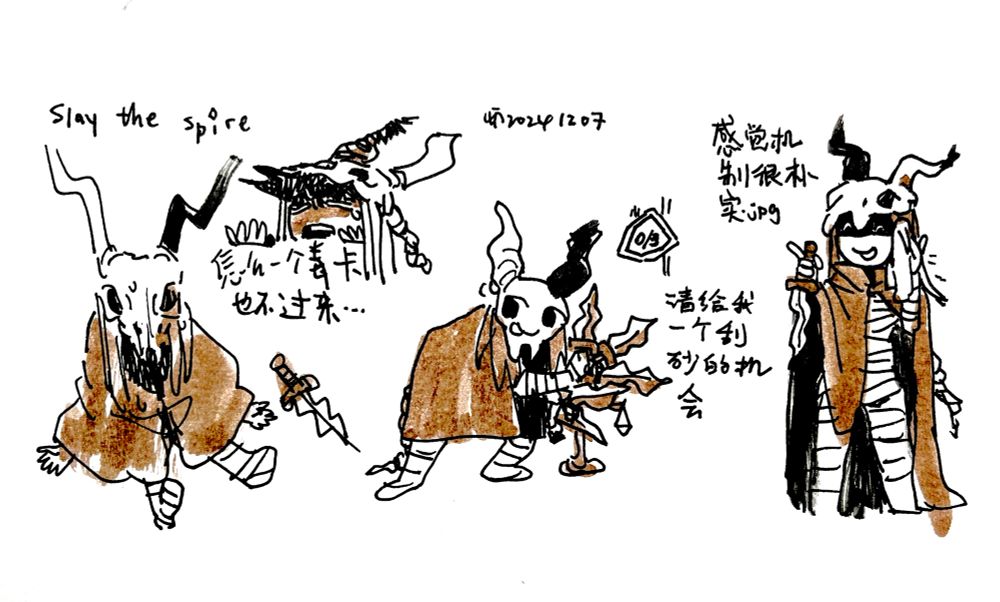 Slay the spire
20241207
一个毒卡
也不过来…
0/9
请给我
一个刮
痧的机
会
感觉机
制很朴
实.jpg